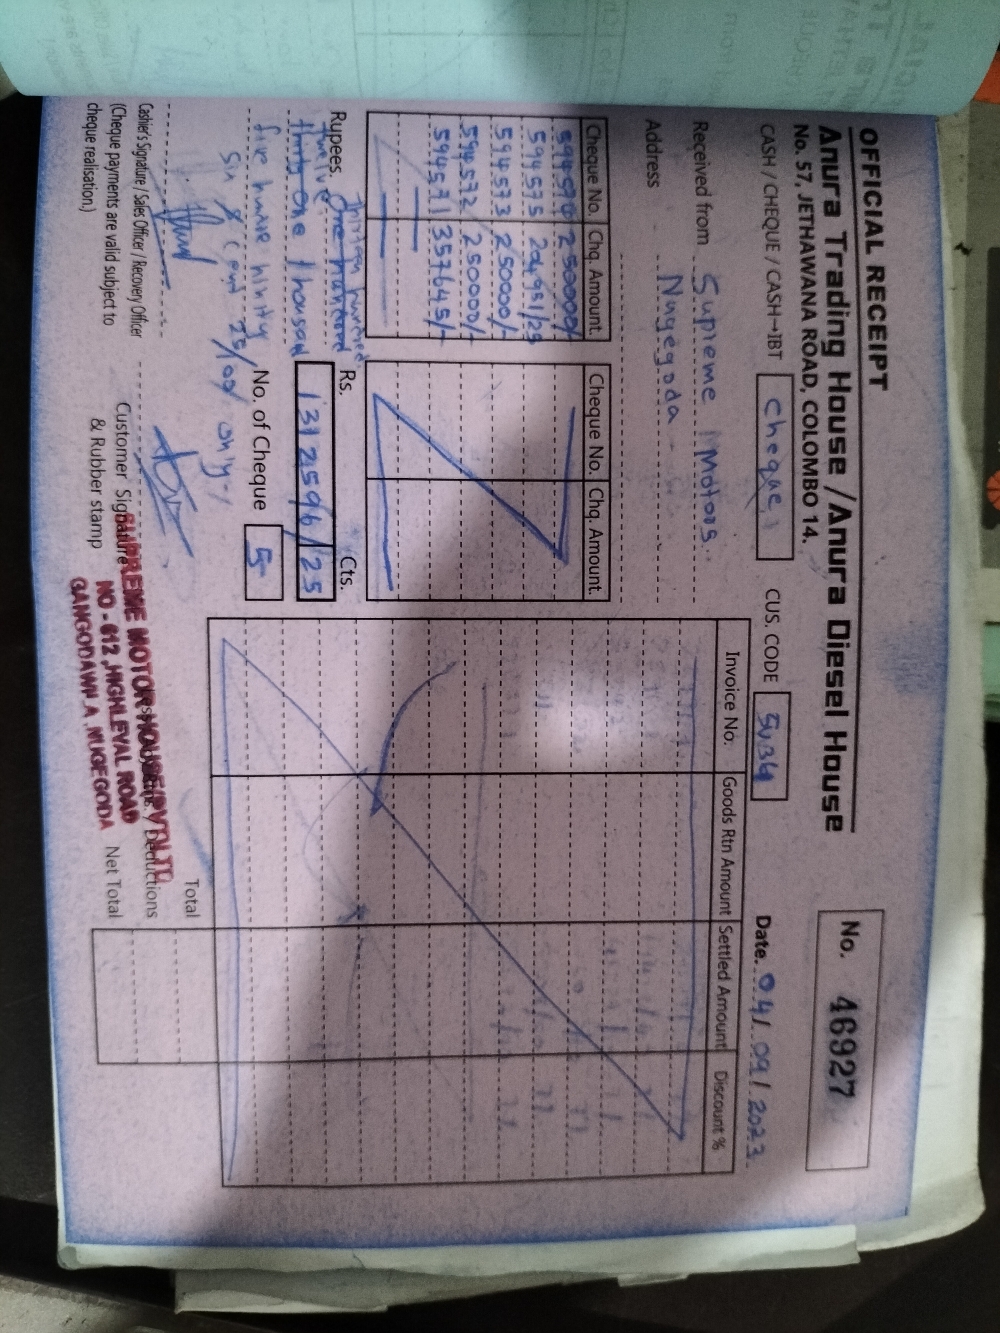 OFFICIAL RECEIPT
Anura Trading House / Anura Diesel House
No. 57, JETHAWANA ROAD, COLOMBO 14.
No. 46927
CASH / CHEQUE / CASH-IBT Cheque
CUS. CODE SU34
Date. 04/09/2023
Received from Supreme Motors
Address Nugegoda
Cheque No. Chq. Amount. Cheque No. Chq. Amount.
250000/-
594575 204951/25
594573 250000/-
594572 250000/-
594571 357645/-
Invoice No. Goods Rtn Amount Settled Amount Discount %
Rs. Cts.
1312596/25
Rupees. thirteen hundred
twelve
thirty one thousand
five hundred ninty
six & cent 25/100 only-/
No. of Cheque 5
Total
Deductions
Net Total
Cashier's Signature / Sales Officer / Recovery Officer
(Cheque payments are valid subject to
cheque realisation.)
Customer Signature
& Rubber stamp
SUPREME MOTOR HOUSE (PVT) LTD
NO - 612, HIGHLEVAL ROAD
GANGODAWILA, NUGEGODA